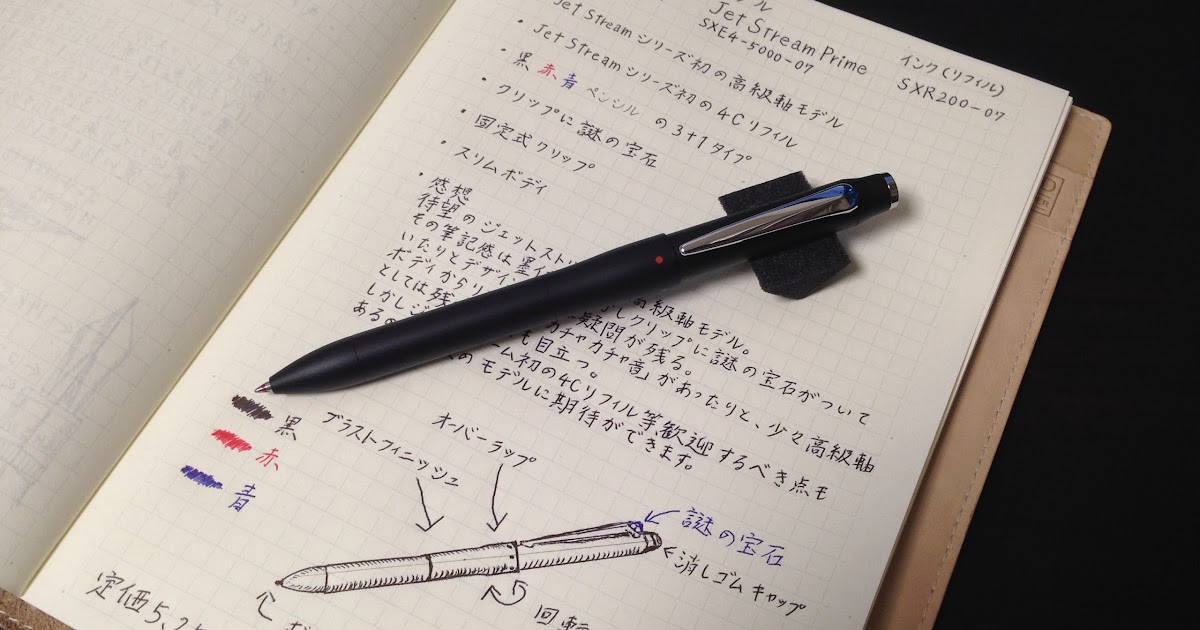 Jet Stream Prime
SXE4-5000-07
インク(リフィル)
SXR200-07
Jet Stream シリーズ初の高級軸モデル
・Jet Stream シリーズ初の4Cリフィル
・黒 赤 青 ペンシル の3+1タイプ
・クリップに謎の宝石
・固定式クリップ
・スリムボディ
・感想
待望のジェットスト 高級軸モデル。
その筆記感は クリップに謎の宝石がついて
いたりとデザイ 疑問が残る。
ボディから 「カチャカチャ音」があったりと、少々高級軸
としては残 も目立つ。
しかし 初の4Cリフィル等歓迎するべき点も
ある モデルに期待ができます。
黒
赤
青
ブラストフィニッシュ
オーバーラップ
謎の宝石
消しゴムキャップ
回転
定価5,2